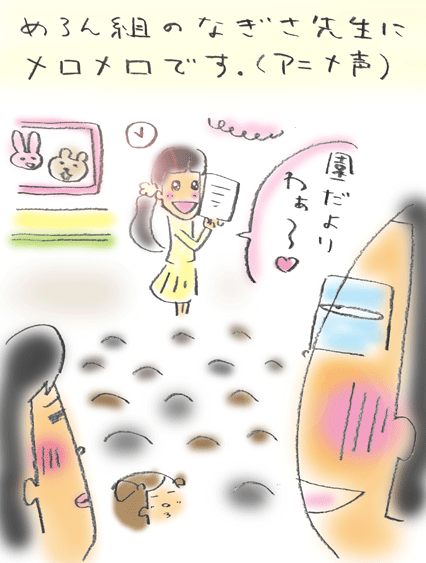 めろん組のなぎさ先生に
メロメロです。(アニメ声)
園だより
わぁ〜♥